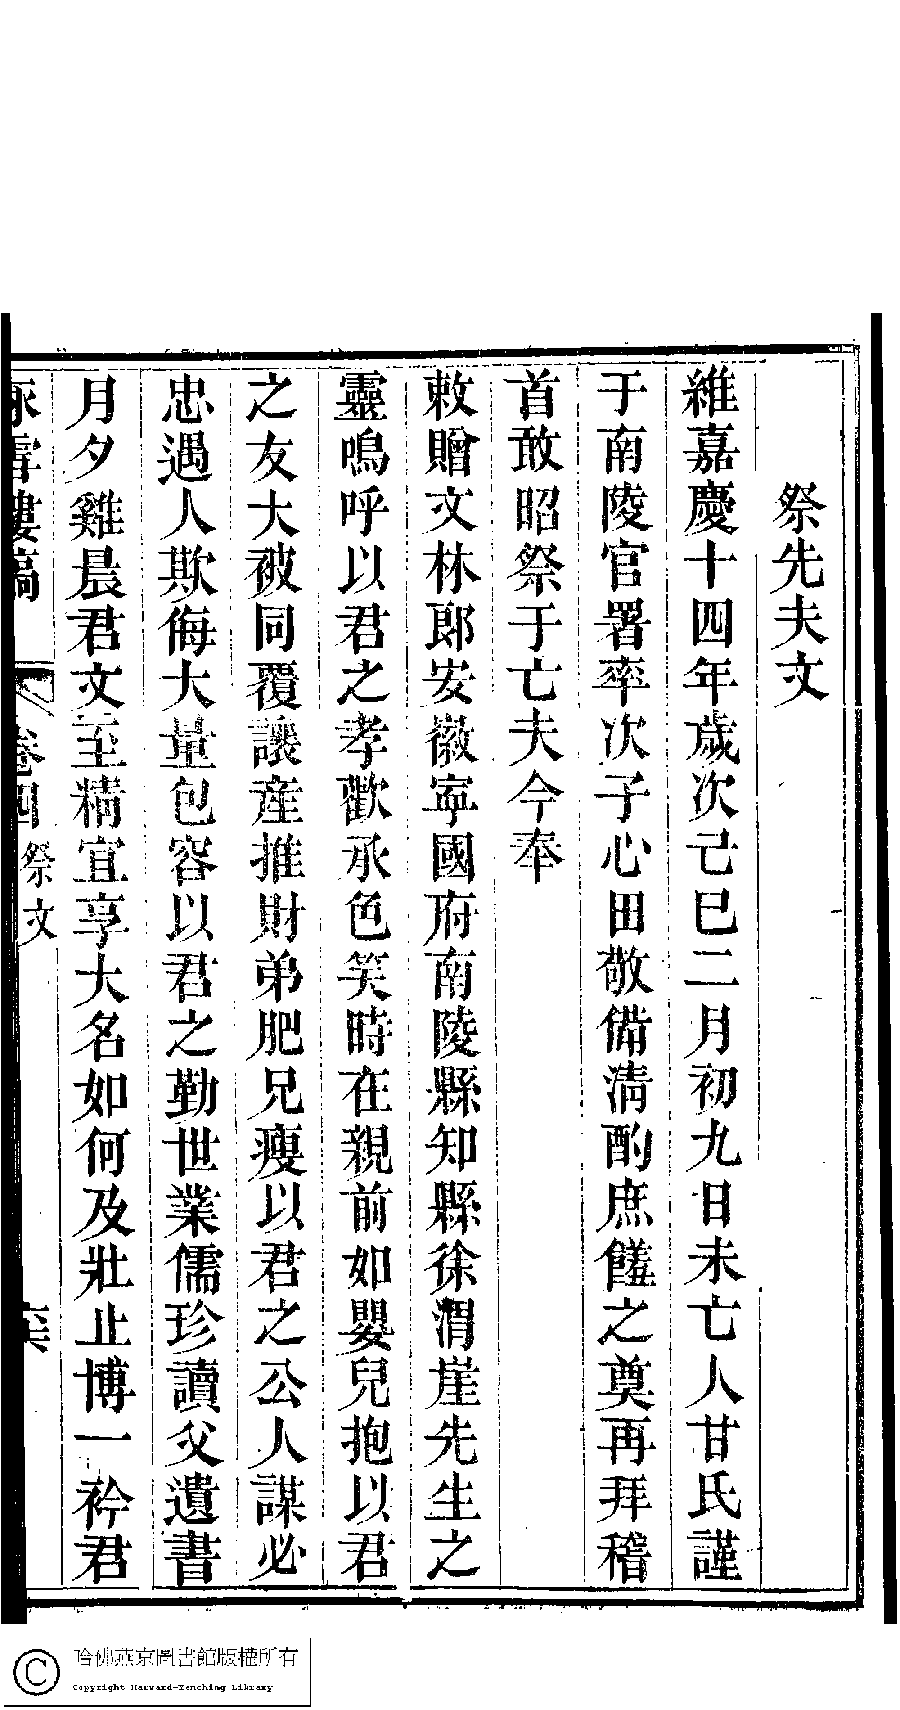 祭先夫文
維嘉慶十四年歲次己巳二月初九日未亡人甘氏謹
于南陵官署率次子心田敬備清酌庶饈之奠再拜稽
首敢昭祭于亡夫今奉
敕贈文林郎安徽寧國府南陵縣知縣徐渭崖先生之
靈嗚呼以君之孝歡承色笑時在親前如嬰兒抱以君
之友大被同覆讓產推財弟肥兄瘦以君之公人謀必
忠遇人欺侮大量包容以君之勤世業儒珍讀父遺書
月夕雞晨君文至精宜享大名如何及壯止博一衿君
卷四 祭文
哈佛燕京圖書館版權所有
Copyright Harvard-Yenching Library